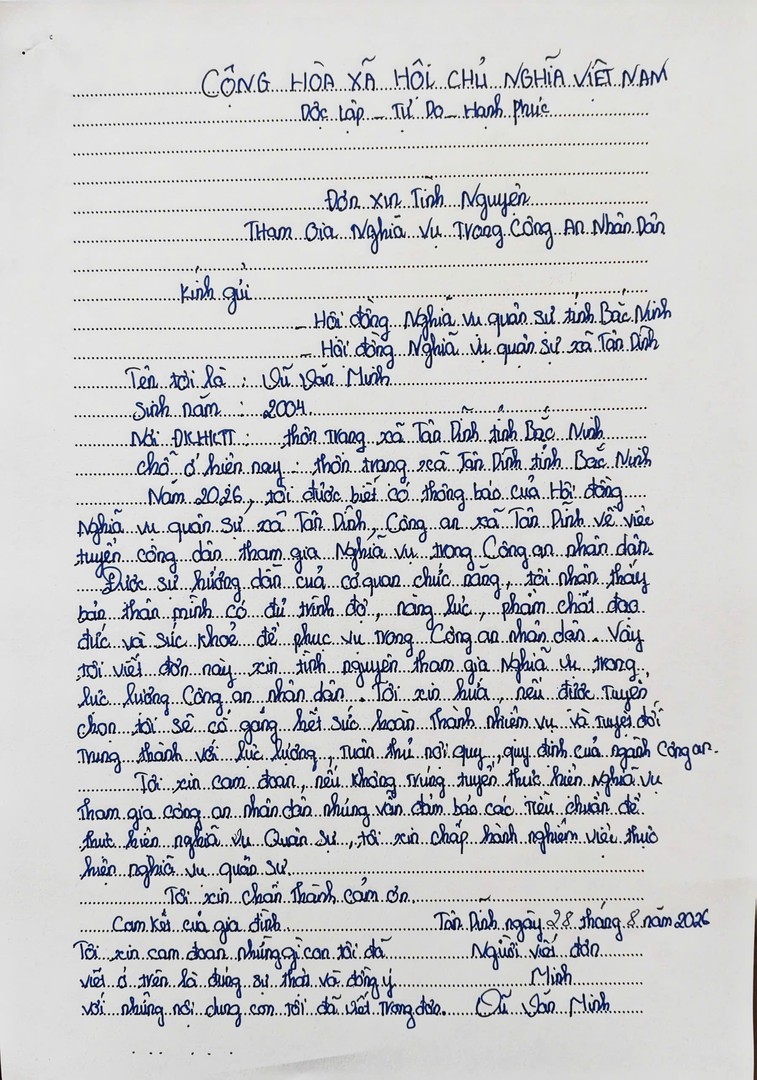 CỘNG HÒA XÃ HỘI CHỦ NGHĨA VIỆT NAM
Độc Lập - Tự Do - Hạnh Phúc
Đơn xin Tình Nguyện
Tham Gia Nghĩa Vụ Trong Công An Nhân Dân
Kính gửi
- Hội đồng Nghĩa vụ quân sự tỉnh Bắc Ninh
- Hội đồng Nghĩa vụ quân sự xã Tân Dĩnh
Tên tôi là : Vũ Văn Minh
Sinh năm : 2004
Nơi ĐKHKTT : thôn Trang xã Tân Dĩnh tỉnh Bắc Ninh
chỗ ở hiện nay : thôn trang xã Tân Dĩnh tỉnh Bắc Ninh
Năm 2026, tôi được biết có thông báo của Hội đồng
Nghĩa vụ quân sự xã Tân Dĩnh, Công an xã Tân Dĩnh về việc
tuyển công dân tham gia Nghĩa vụ trong Công an nhân dân.
Được sự hướng dẫn của cơ quan chức năng, tôi nhận thấy
bản thân mình có đủ trình độ, năng lực, phẩm chất đạo
đức và sức khoẻ để phục vụ trong Công an nhân dân. Vậy
tôi viết đơn này xin tình nguyện tham gia Nghĩa vụ trong
lực lượng Công an nhân dân. Tôi xin hứa, nếu được Tuyển
chọn tôi sẽ cố gắng hết sức hoàn Thành nhiệm vụ và tuyệt đối
Trung thành với lực lượng, Tuân thủ nội quy, quy định của ngành Công an.
Tôi xin cam đoan, nếu không Trúng tuyển thực hiện Nghĩa vụ
Tham gia công an nhân dân nhưng vẫn đảm bảo các Tiêu chuẩn để
thực hiện nghĩa vụ Quân sự, tôi xin chấp hành nghiêm việc thực
hiện nghĩa vụ quân sự.
Tôi xin chân Thành cảm ơn.
Cam kết của gia đình. Tân Dĩnh ngày 28 tháng 8 năm 2026
Tôi xin cam đoan những gì con tôi đã Người viết đơn
viết ở trên là đúng sự thật và đồng ý Minh
với những nội dung con tôi đã viết Trong đơn. Vũ Văn Minh